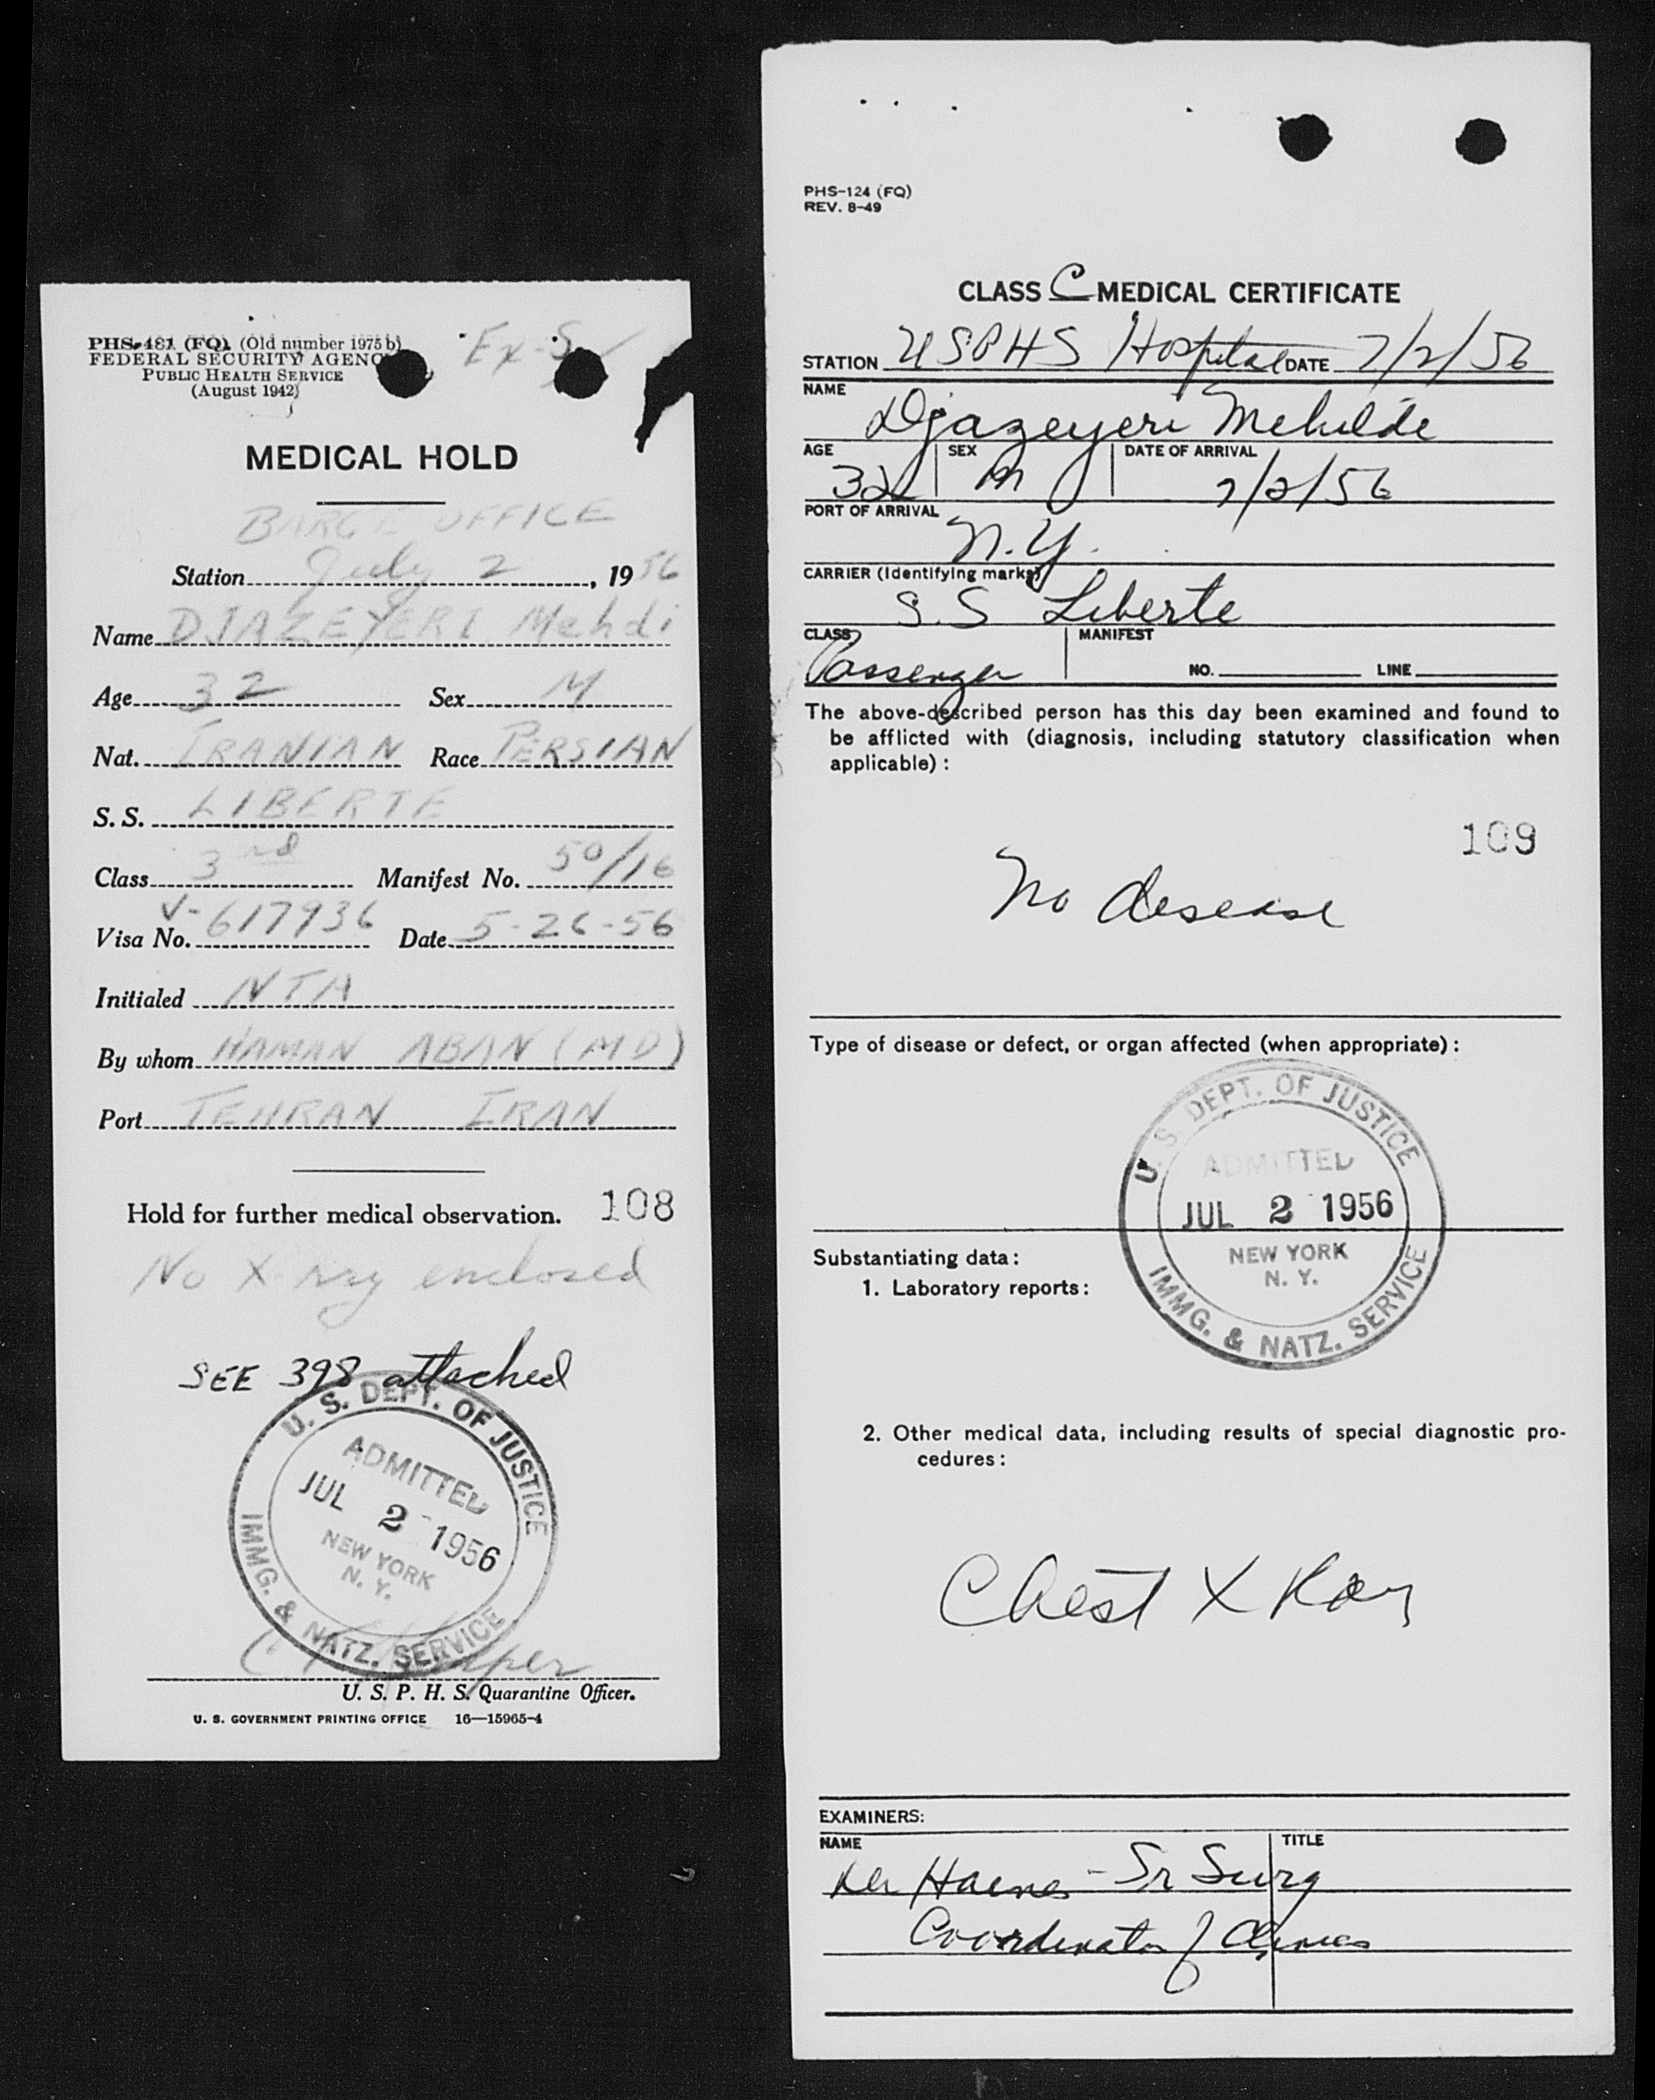 PHS-481 (FQ) (Old number 1975 b)
FEDERAL SECURITY AGENCY
PUBLIC HEALTH SERVICE
(August 1942)
Ex-S
MEDICAL HOLD
BARGE OFFICE
Station July 2, 1956
Name DJAZEYERI Mehdi
Age 32 Sex M
Nat. IRANIAN Race PERSIAN
S. S. LIBERTE
Class 3rd Manifest No. 50/16
Visa No. V-617936 Date 5-26-56
Initialed NTA
By whom HAMAN ABAN (MD)
Port TEHRAN IRAN
Hold for further medical observation. 108
No X-ray enclosed
SEE 398 attached
U. S. DEPT. OF JUSTICE
ADMITTED
JUL 2 1956
NEW YORK
N. Y.
IMMG. & NATZ. SERVICE
U. S. P. H. S. Quarantine Officer.
U. S. GOVERNMENT PRINTING OFFICE 16—15965-4
PHS-124 (FQ)
REV. 8-49
CLASS C MEDICAL CERTIFICATE
STATION USPHS Hospital DATE 7/2/56
NAME
Djazeyeri Mehilde
AGE SEX DATE OF ARRIVAL
32 M 7/2/56
PORT OF ARRIVAL
N.Y.
CARRIER (Identifying marks)
S.S Liberte
CLASS MANIFEST
Passenger NO. LINE
The above-described person has this day been examined and found to
be afflicted with (diagnosis, including statutory classification when
applicable) :
109
No disease
Type of disease or defect, or organ affected (when appropriate) :
U. S. DEPT. OF JUSTICE
ADMITTED
JUL 2 1956
NEW YORK
N. Y.
IMMG. & NATZ. SERVICE
Substantiating data :
1. Laboratory reports :
2. Other medical data, including results of special diagnostic pro-
cedures :
Chest X Ray
EXAMINERS:
NAME TITLE
Haines - Sr Surg
Coordinator of Clinics